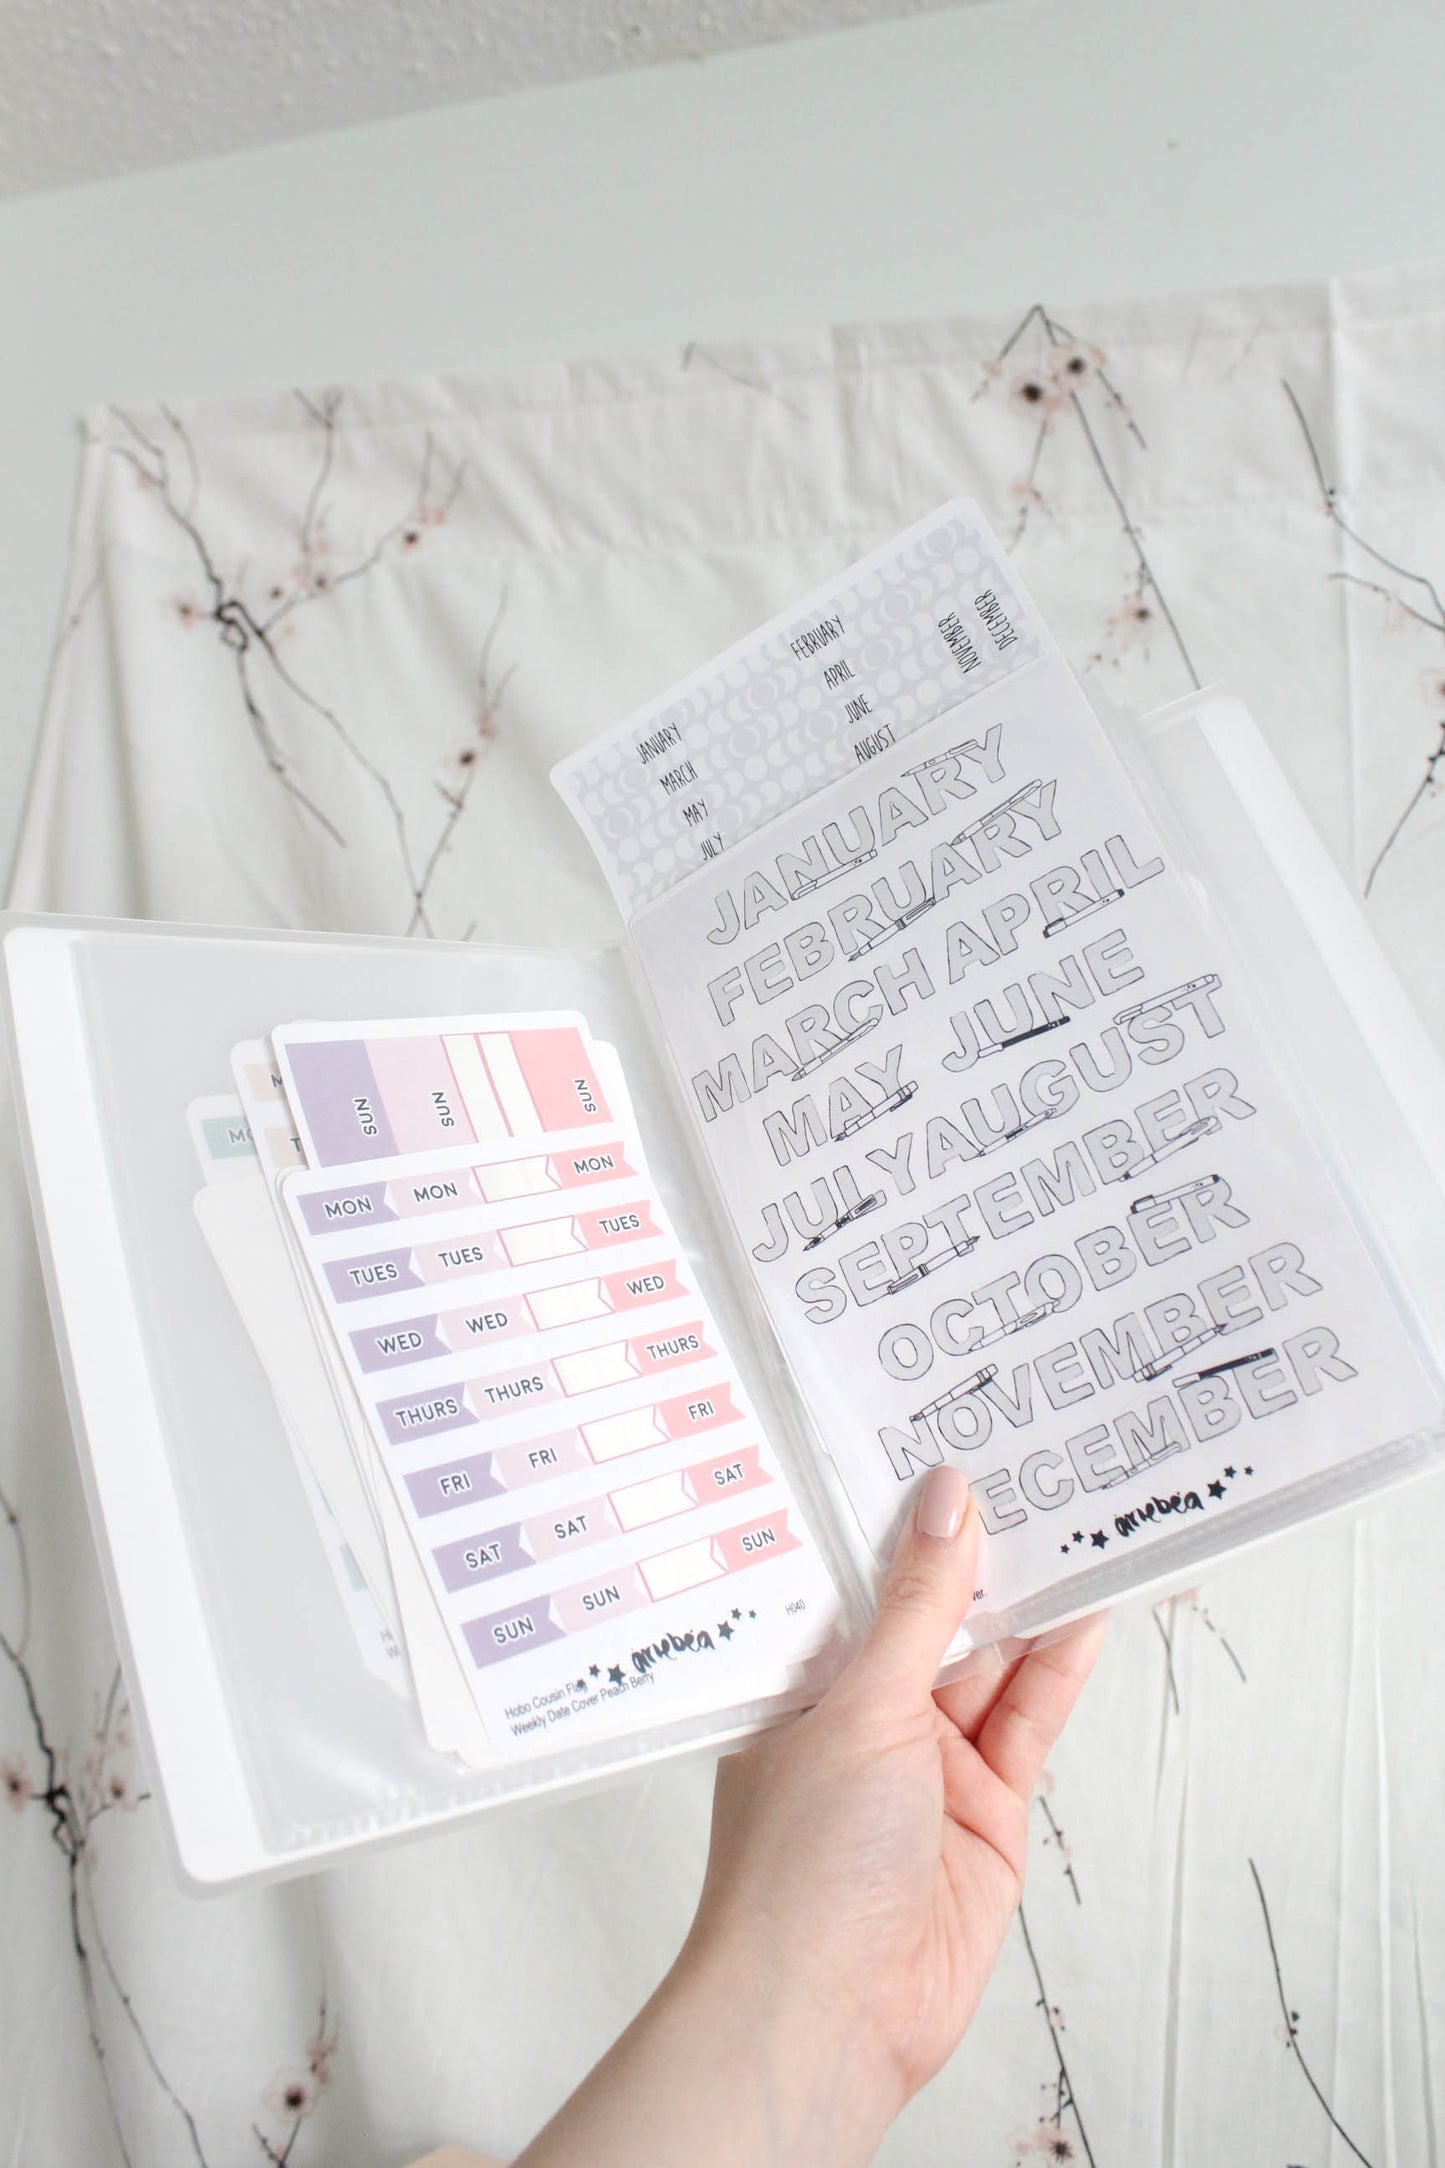 SUN SUN SUN
MON MON MON
TUES TUES TUES
WED WED WED
THURS THURS THURS
FRI FRI FRI
SAT SAT SAT
SUN SUN SUN
artebea
H040
Hobo Cousin Flag
Weekly Date Cover Peach Berry
JANUARY FEBRUARY
MARCH APRIL
MAY JUNE
JULY AUGUST
NOVEMBER
DECEMBER
JANUARY
FEBRUARY
MARCH APRIL
MAY JUNE
JULY AUGUST
SEPTEMBER
OCTOBER
NOVEMBER
ECEMBER
artebea